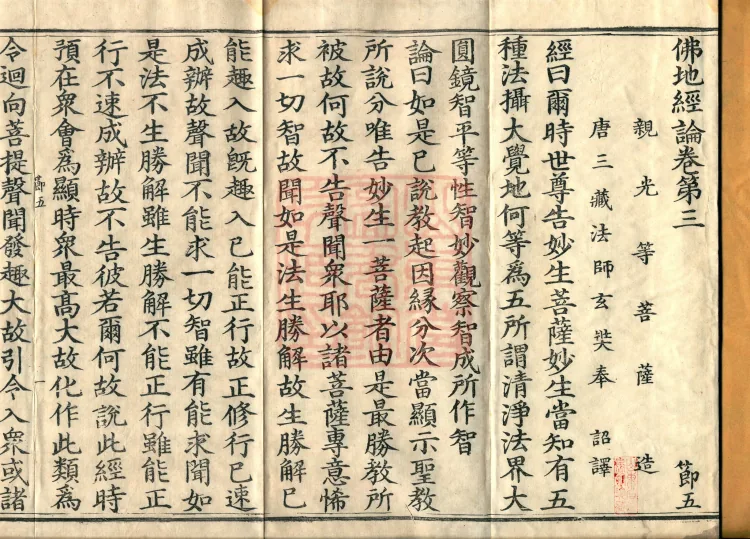 佛地經論卷第三 節五
親光等菩薩造
唐三藏法師玄奘奉 詔譯
經曰爾時世尊告妙生菩薩妙生當知有五
種法攝大覺地何等為五所謂清淨法界大
圓鏡智平等性智妙觀察智成所作智
論曰如是已說教起因緣分次當顯示聖教
所說分唯告妙生一菩薩者由是最勝教所
被故何故不告聲聞衆耶以諸菩薩專意悕
求一切智故聞如是法生勝解故生勝解已
能趣入故旣趣入已能正行故正修行已速
成辦故聲聞不能求一切智雖有能求聞如
是法不生勝解雖生勝解不能正行雖能正
行不速成辦故不告彼若爾何故說此經時
預在衆會為顯時衆最髙大故化作此類為
節五
一
令迴向菩提聲聞發趣大故引令入衆或諸